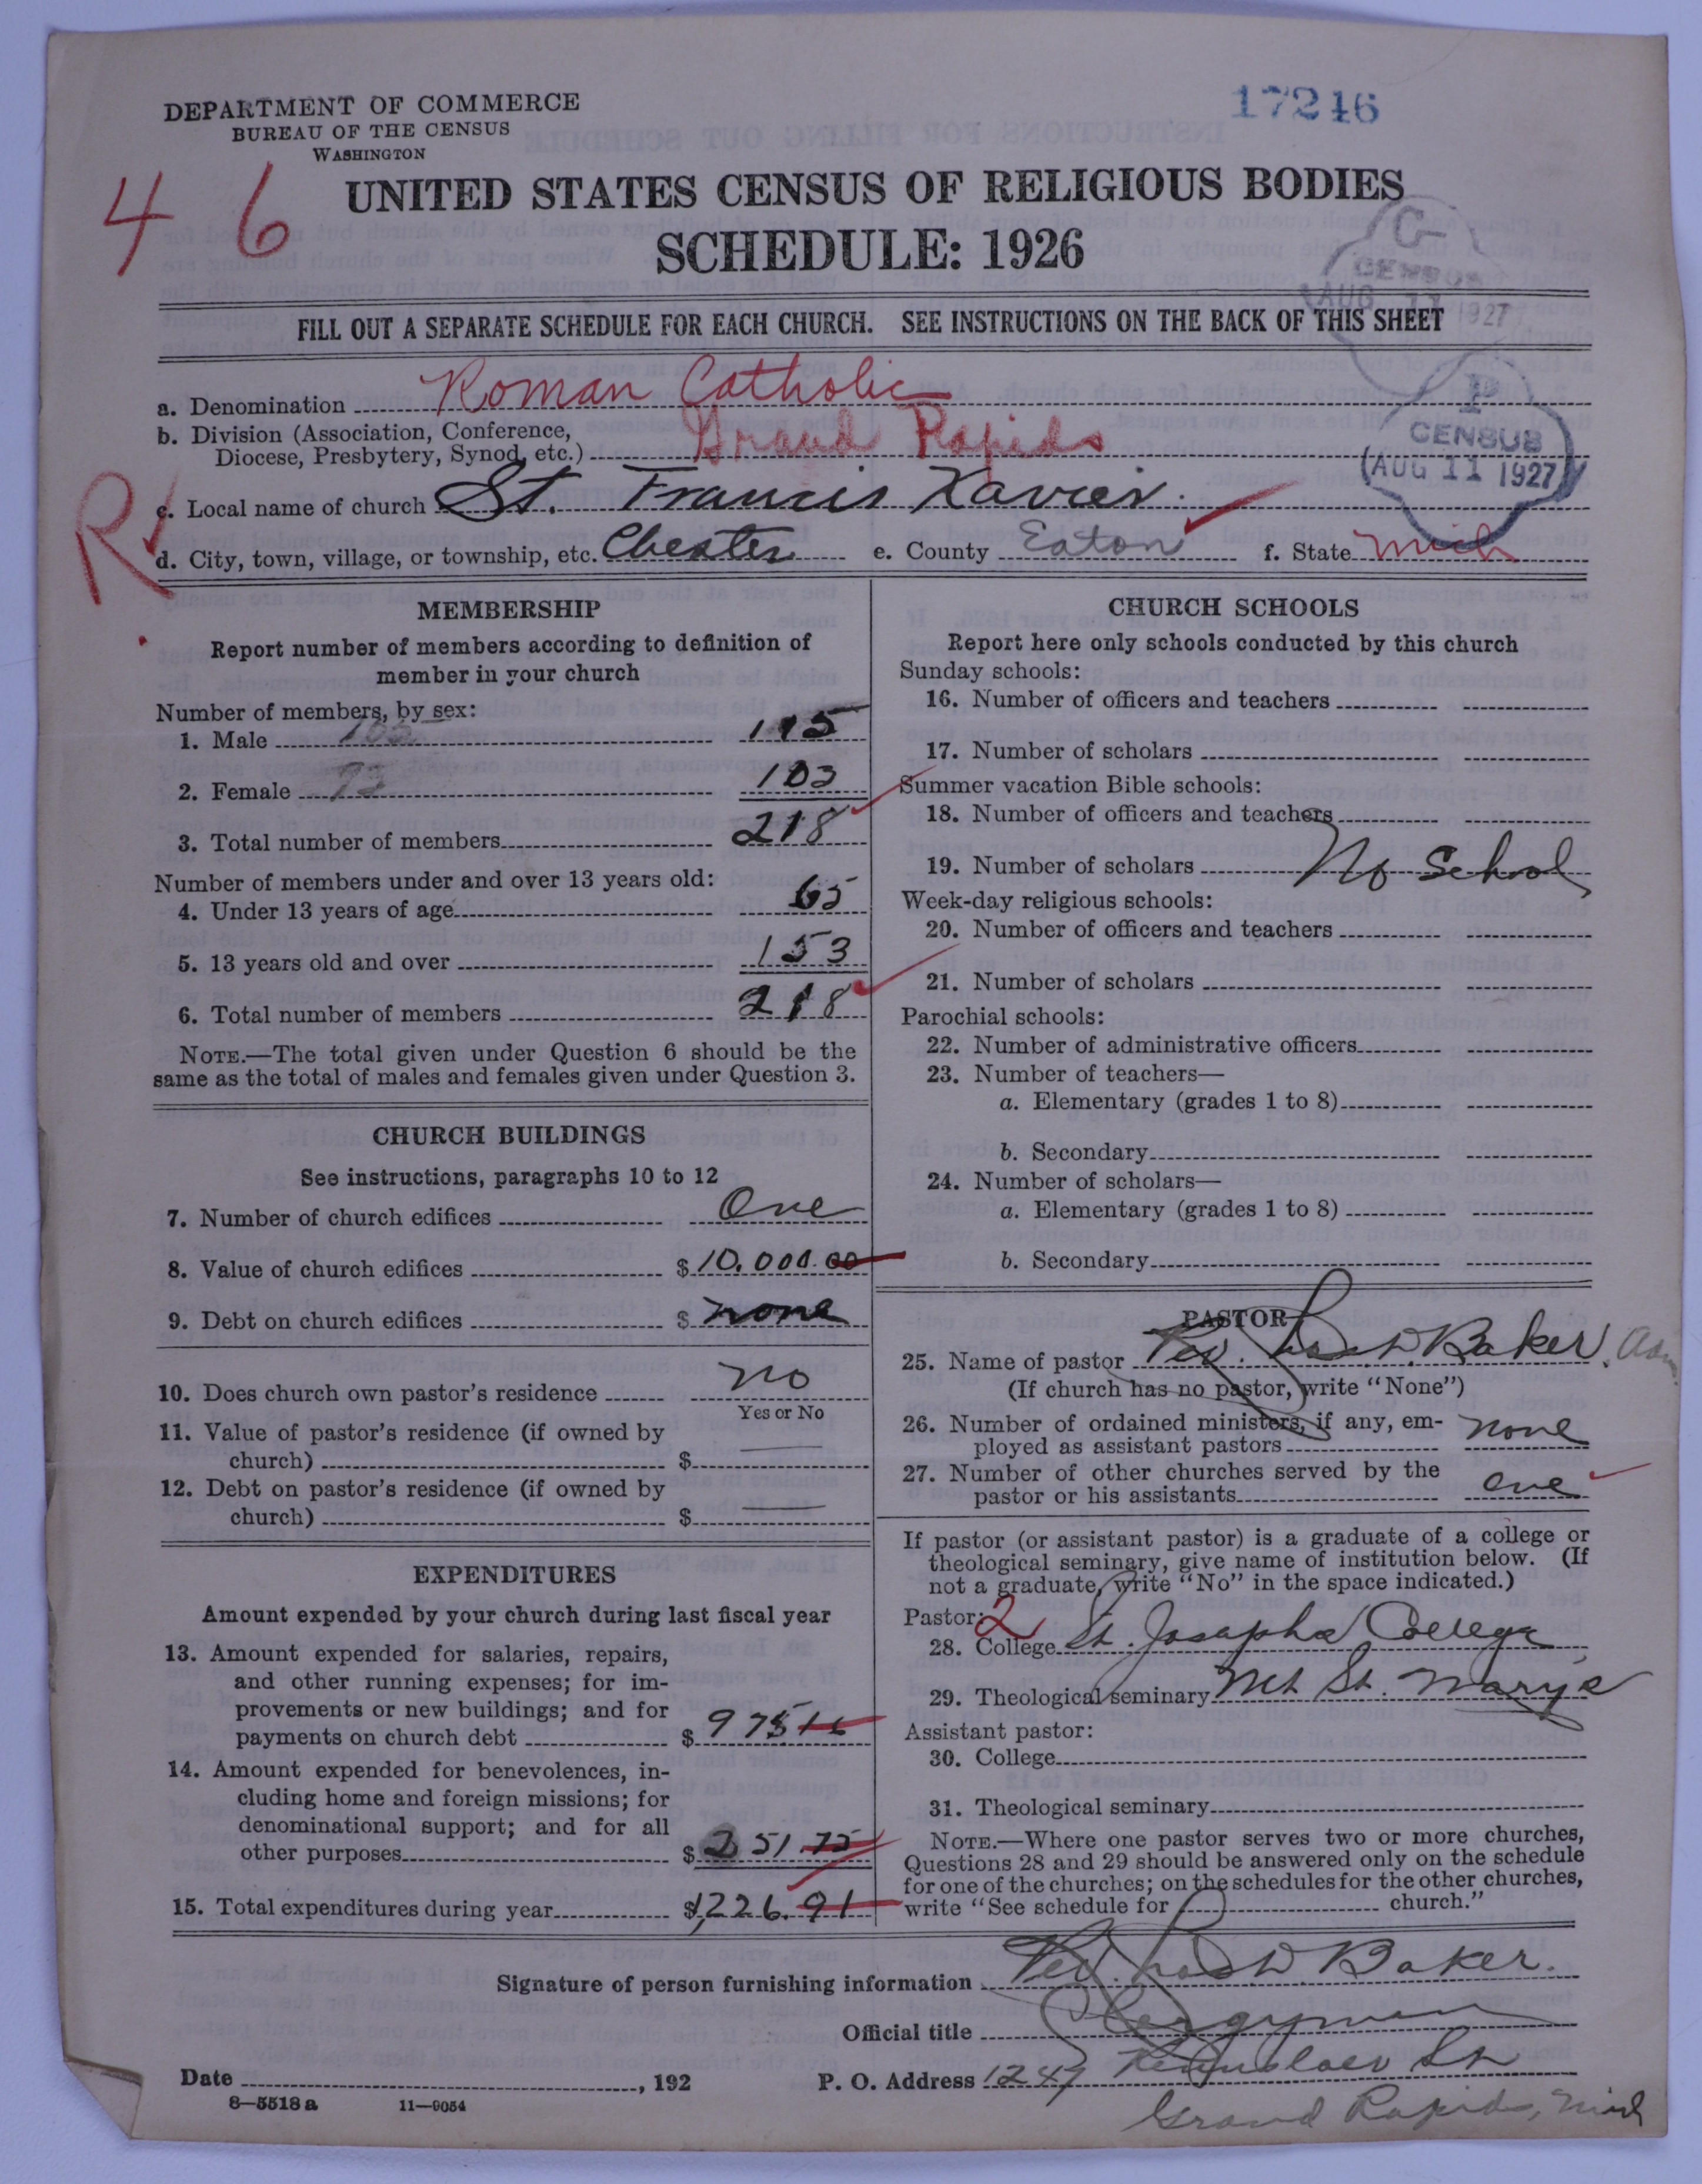 17246
DEPARTMENT OF COMMERCE
BUREAU OF THE CENSUS
WASHINGTON
4 6
UNITED STATES CENSUS OF RELIGIOUS BODIES
SCHEDULE: 1926
G
CENSUS
AUG 11 1927
FILL OUT A SEPARATE SCHEDULE FOR EACH CHURCH. SEE INSTRUCTIONS ON THE BACK OF THIS SHEET
P
CENSUS
AUG 11 1927
a. Denomination Roman Catholic
b. Division (Association, Conference,
Diocese, Presbytery, Synod, etc.) Grand Rapids
R
c. Local name of church St. Francis Xavier.
d. City, town, village, or township, etc. Chester e. County Eaton f. State Mich
MEMBERSHIP
Report number of members according to definition of
member in your church
Number of members, by sex:
1. Male 115
2. Female 103
3. Total number of members 218
Number of members under and over 13 years old:
4. Under 13 years of age 65
5. 13 years old and over 153
6. Total number of members 218
NOTE.—The total given under Question 6 should be the
same as the total of males and females given under Question 3.
CHURCH BUILDINGS
See instructions, paragraphs 10 to 12
7. Number of church edifices One
8. Value of church edifices $10.000.00
9. Debt on church edifices $ none
10. Does church own pastor's residence no
Yes or No
11. Value of pastor's residence (if owned by
church) $
12. Debt on pastor's residence (if owned by
church) $
EXPENDITURES
Amount expended by your church during last fiscal year
13. Amount expended for salaries, repairs,
and other running expenses; for im-
provements or new buildings; and for
payments on church debt $ 975 16
14. Amount expended for benevolences, in-
cluding home and foreign missions; for
denominational support; and for all
other purposes $ 251.75
15. Total expenditures during year $1,226.91
CHURCH SCHOOLS
Report here only schools conducted by this church
Sunday schools:
16. Number of officers and teachers
17. Number of scholars
Summer vacation Bible schools:
18. Number of officers and teachers
19. Number of scholars No School
Week-day religious schools:
20. Number of officers and teachers
21. Number of scholars
Parochial schools:
22. Number of administrative officers
23. Number of teachers—
a. Elementary (grades 1 to 8)
b. Secondary
24. Number of scholars—
a. Elementary (grades 1 to 8)
b. Secondary
PASTOR
25. Name of pastor Rev. D. Baker. Adm.
(If church has no pastor, write "None")
26. Number of ordained ministers, if any, em-
ployed as assistant pastors none
27. Number of other churches served by the
pastor or his assistants one
If pastor (or assistant pastor) is a graduate of a college or
theological seminary, give name of institution below. (If
not a graduate, write "No" in the space indicated.)
Pastor: 2
28. College St. Josephs College
29. Theological seminary Mt St. Marys
Assistant pastor:
30. College
31. Theological seminary
NOTE.—Where one pastor serves two or more churches,
Questions 28 and 29 should be answered only on the schedule
for one of the churches; on the schedules for the other churches,
write "See schedule for church."
Signature of person furnishing information Rev. D. Baker.
Official title Clergyman
Date , 192 P. O. Address 1247 St
8—5518 a 11—9054
Grand Rapids, Mich